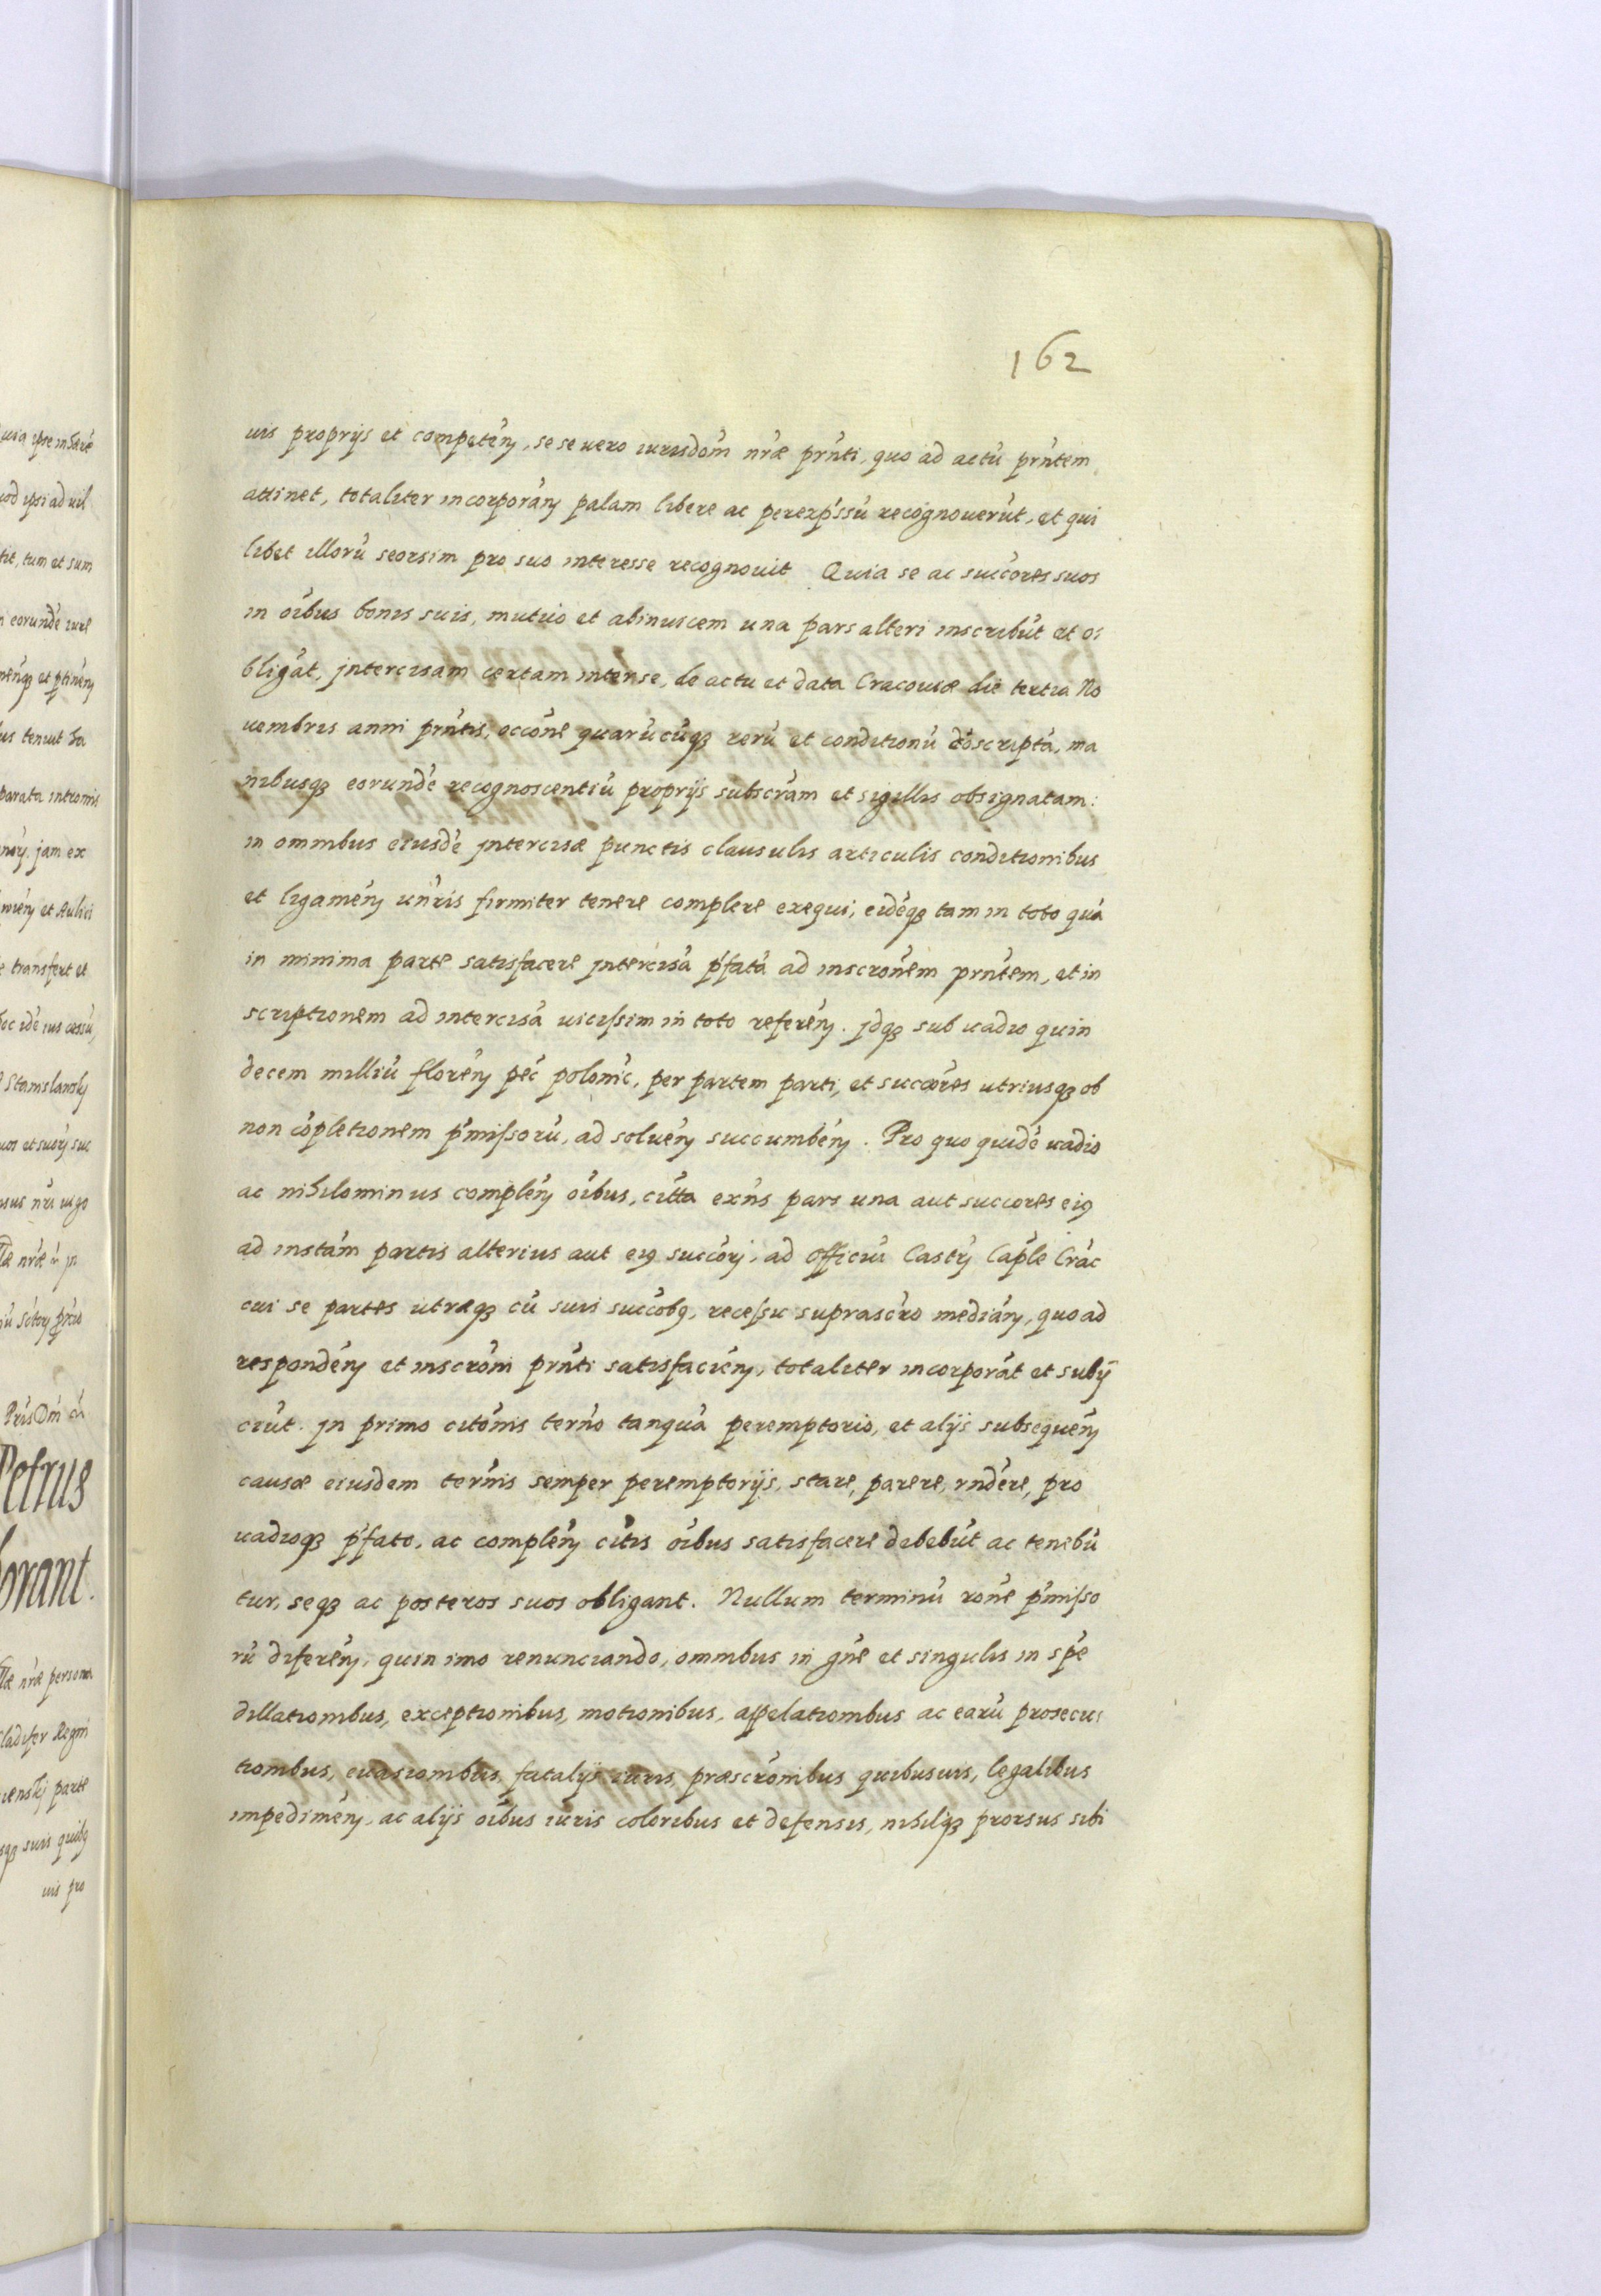 162
uis proprijs et competeń, se se uero iurisdom̃ nræ prñti, quo ad actũ prñtem
attinet, totaliter incorporań palam libere ac perexp̃ssũ recognouerũt, et qui
libet illorũ seorsim pro suo interesse recognouit Quia se ac succores suos
in oĩbus bonis suis, mutuo et abinuicem una pars alteri inscribũt et o
bligãt, jntercisam certam inter se, de actu et data Cracouiæ die tertia No
uembris anni prñtis, occõne quarũcũq3 rerũ et conditionũ cõscriptã, ma
nibusq3 eorundẽ recognoscentiũ proprijs subscr̃am et sigillis obsignatam:
in omnibus eiusdẽ jntercisæ punctis clausulis articulis conditionibus
et ligameń uñris firmiter tenere complere exequi, eidẽq3 tam in toto quã
in minima parte satisfacere jntercisã p̃fatã ad inscrõnem prñtem, et in
scriptionem ad intercisã uicissim in toto refereń. jdq3 sub uadio quin
decem milliũ floreń pec̃ polonic̃, per partem parti, et succores utriusq3 ob
non cõpletionem p̃missorũ, ad solueń succumbeń. Pro quo quidẽ uadio
ac nihilominus compleń oĩbus, citta exñs pars una aut succores ei9
ad instam̃ partis alterius aut ei9 succorj, ad officiũ Castrj Cap̃le Crac̃
cui se partes utræq3 cũ suis succob9, recessu suprascro mediań, quo ad
respondeń et inscrõni prñti satisfacień, totaliter incorporãt et subij
ciũt. jn primo citõnis term̃o tanquã peremptorio, et alijs subsequeń
causæ eiusdem term̃is semper peremptorijs, stare, parere, rñdere, pro
uadioq3 p̃fato, ac compleń cit̃is oĩbus satisfacere debebũt ac tenebũ
tur, seq3 ac posteros suos obligant. Nullum terminũ rõne p̃misso
rũ difereń, quin imo renunciando, omnibus in gñe et singulis in sp̃e
dillationibus, exceptionibus, motionibus, appelationibus ac earũ prosecu
tionibus, euasionibus, fatalijs iuris, præscrõnibus quibusuis, legalibus
impedimeń, ac alijs oĩbus iuris coloribus et defensis, nihilq3 prorsus sibi